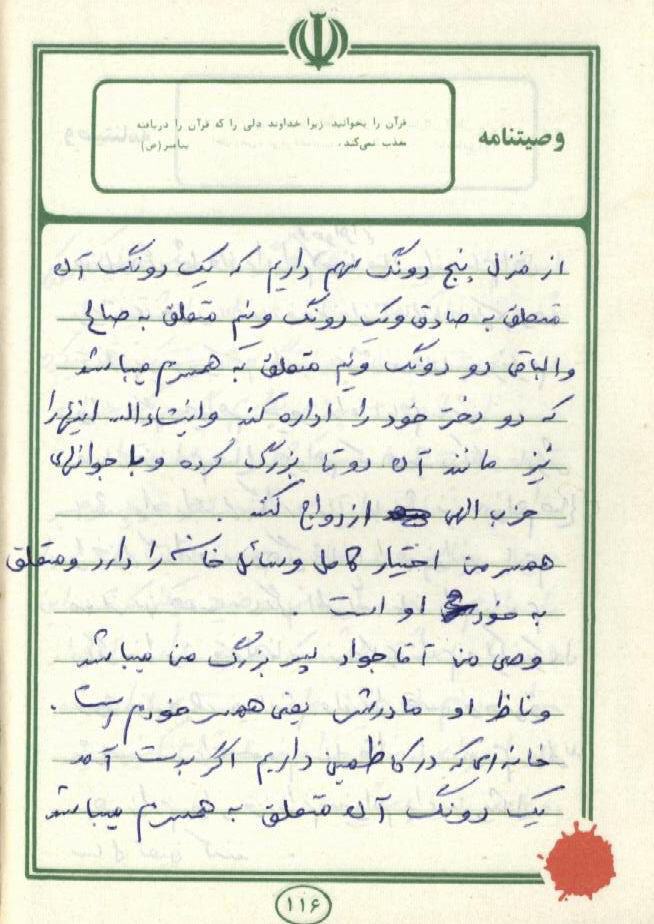 وصیتنامه
قرآن را بخوانید زیرا خداوند دلی را که قرآن را دریافته
معذب نمی‌کند. پیامبر(ص)
از منزل پنج دونگ سهم داریم که یک دونگ آن
متعلق به صادق و یک دونگ و نیم متعلق به صالح
والباقی دو دونگ و نیم متعلق به همسرم میباشد
که دو دختر خود را اداره کند وانشاءالله اینها را
نیز مانند آن دو تا بزرگ کرده و با جوانهای
حزب الهی ازدواج کنند.
همسر من اختیار کامل وسائل خانه را دارد و متعلق
به خود او است.
وصی من آقا جواد پسر بزرگ من میباشد
و ناظر او مادرش یعنی همسر خودم است.
خانه‌ای که در کاظمین داریم اگر بدست آمد
یک دونگ آن متعلق به همسرم میباشد
۱۱۶